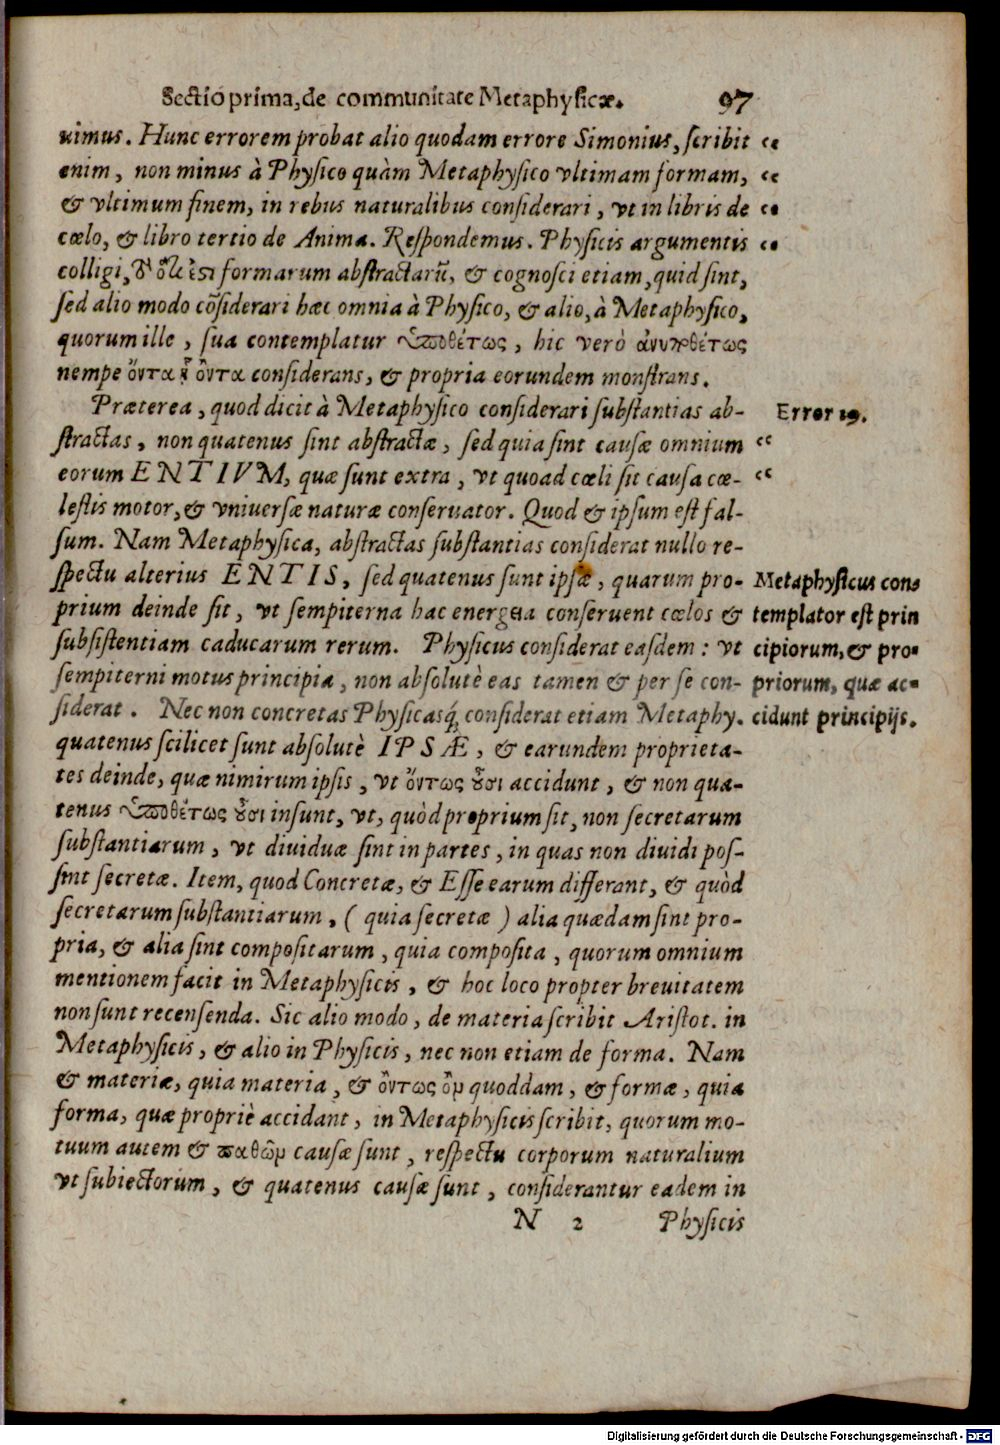 Sectio prima, de communitate Metaphysicæ. 97
uimus. Hunc errorem probat alio quodam errore Simonius, scribit
enim, non minus à Physico quàm Metaphysico vltimam formam,
& vltimum finem, in rebus naturalibus considerari, vt in libris de
cœlo, & libro tertio de Anima. Respondemus. Physicis argumentis
colligi, τὸ ὅτι ἐστι formarum abstractarũ, & cognosci etiam, quid sint,
sed alio modo cõsiderari hæc omnia à Physico, & alio, à Metaphysico,
quorum ille, sua contemplatur ὑποθέτως, hic verò ἀνυποθέτως
nempe ὄντα ᾗ ὄντα considerans, & propria eorundem monstrans.
Præterea, quod dicit à Metaphysico considerari substantias ab-
Error 19.
stractas, non quatenus sint abstractæ, sed quia sint causæ omnium
eorum ENTIVM, quæ sunt extra, vt quoad cœli sit causa cœ-
lestis motor, & vniuersæ naturæ conseruator. Quod & ipsum est fal-
sum. Nam Metaphysica, abstractas substantias considerat nullo re-
spectu alterius ENTIS, sed quatenus sunt ipsæ, quarum pro-
prium deinde sit, vt sempiterna hac energeia conseruent cœlos &
subsistentiam caducarum rerum. Physicus considerat easdem: vt
sempiterni motus principia, non absolutè eas tamen & per se con-
siderat. Nec non concretas Physicasq́; considerat etiam Metaphy.
Metaphysicus con-
templator est prin
cipiorum, & pro-
priorum, quæ ac-
cidunt principijs.
quatenus scilicet sunt absolutè IPSÆ, & earundem proprieta-
tes deinde, quæ nimirum ipsis, vt ὄντως οὖσι accidunt, & non qua-
tenus ὑποθέτως οὖσι insunt, vt, quòd proprium sit, non secretarum
substantiarum, vt diuiduæ sint in partes, in quas non diuidi pos-
sint secretæ. Item, quod Concretæ, & Esse earum differant, & quòd
secretarum substantiarum, (quia secretæ) alia quædam sint pro-
pria, & alia sint compositarum, quia composita, quorum omnium
mentionem facit in Metaphysicis, & hoc loco propter breuitatem
non sunt recensenda. Sic alio modo, de materia scribit Aristot. in
Metaphysicis, & alio in Physicis, nec non etiam de forma. Nam
& materiæ, quia materia, & ὄντως ὂν quoddam, & formæ, quia
forma, quæ propriè accidant, in Metaphysicis scribit, quorum mo-
tuum autem & παθῶν causæ sunt, respectu corporum naturalium
vt subiectorum, & quatenus causæ sunt, considerantur eadem in
N 2 Physicis
Digitalisierung gefördert durch die Deutsche Forschungsgemeinschaft - DFG